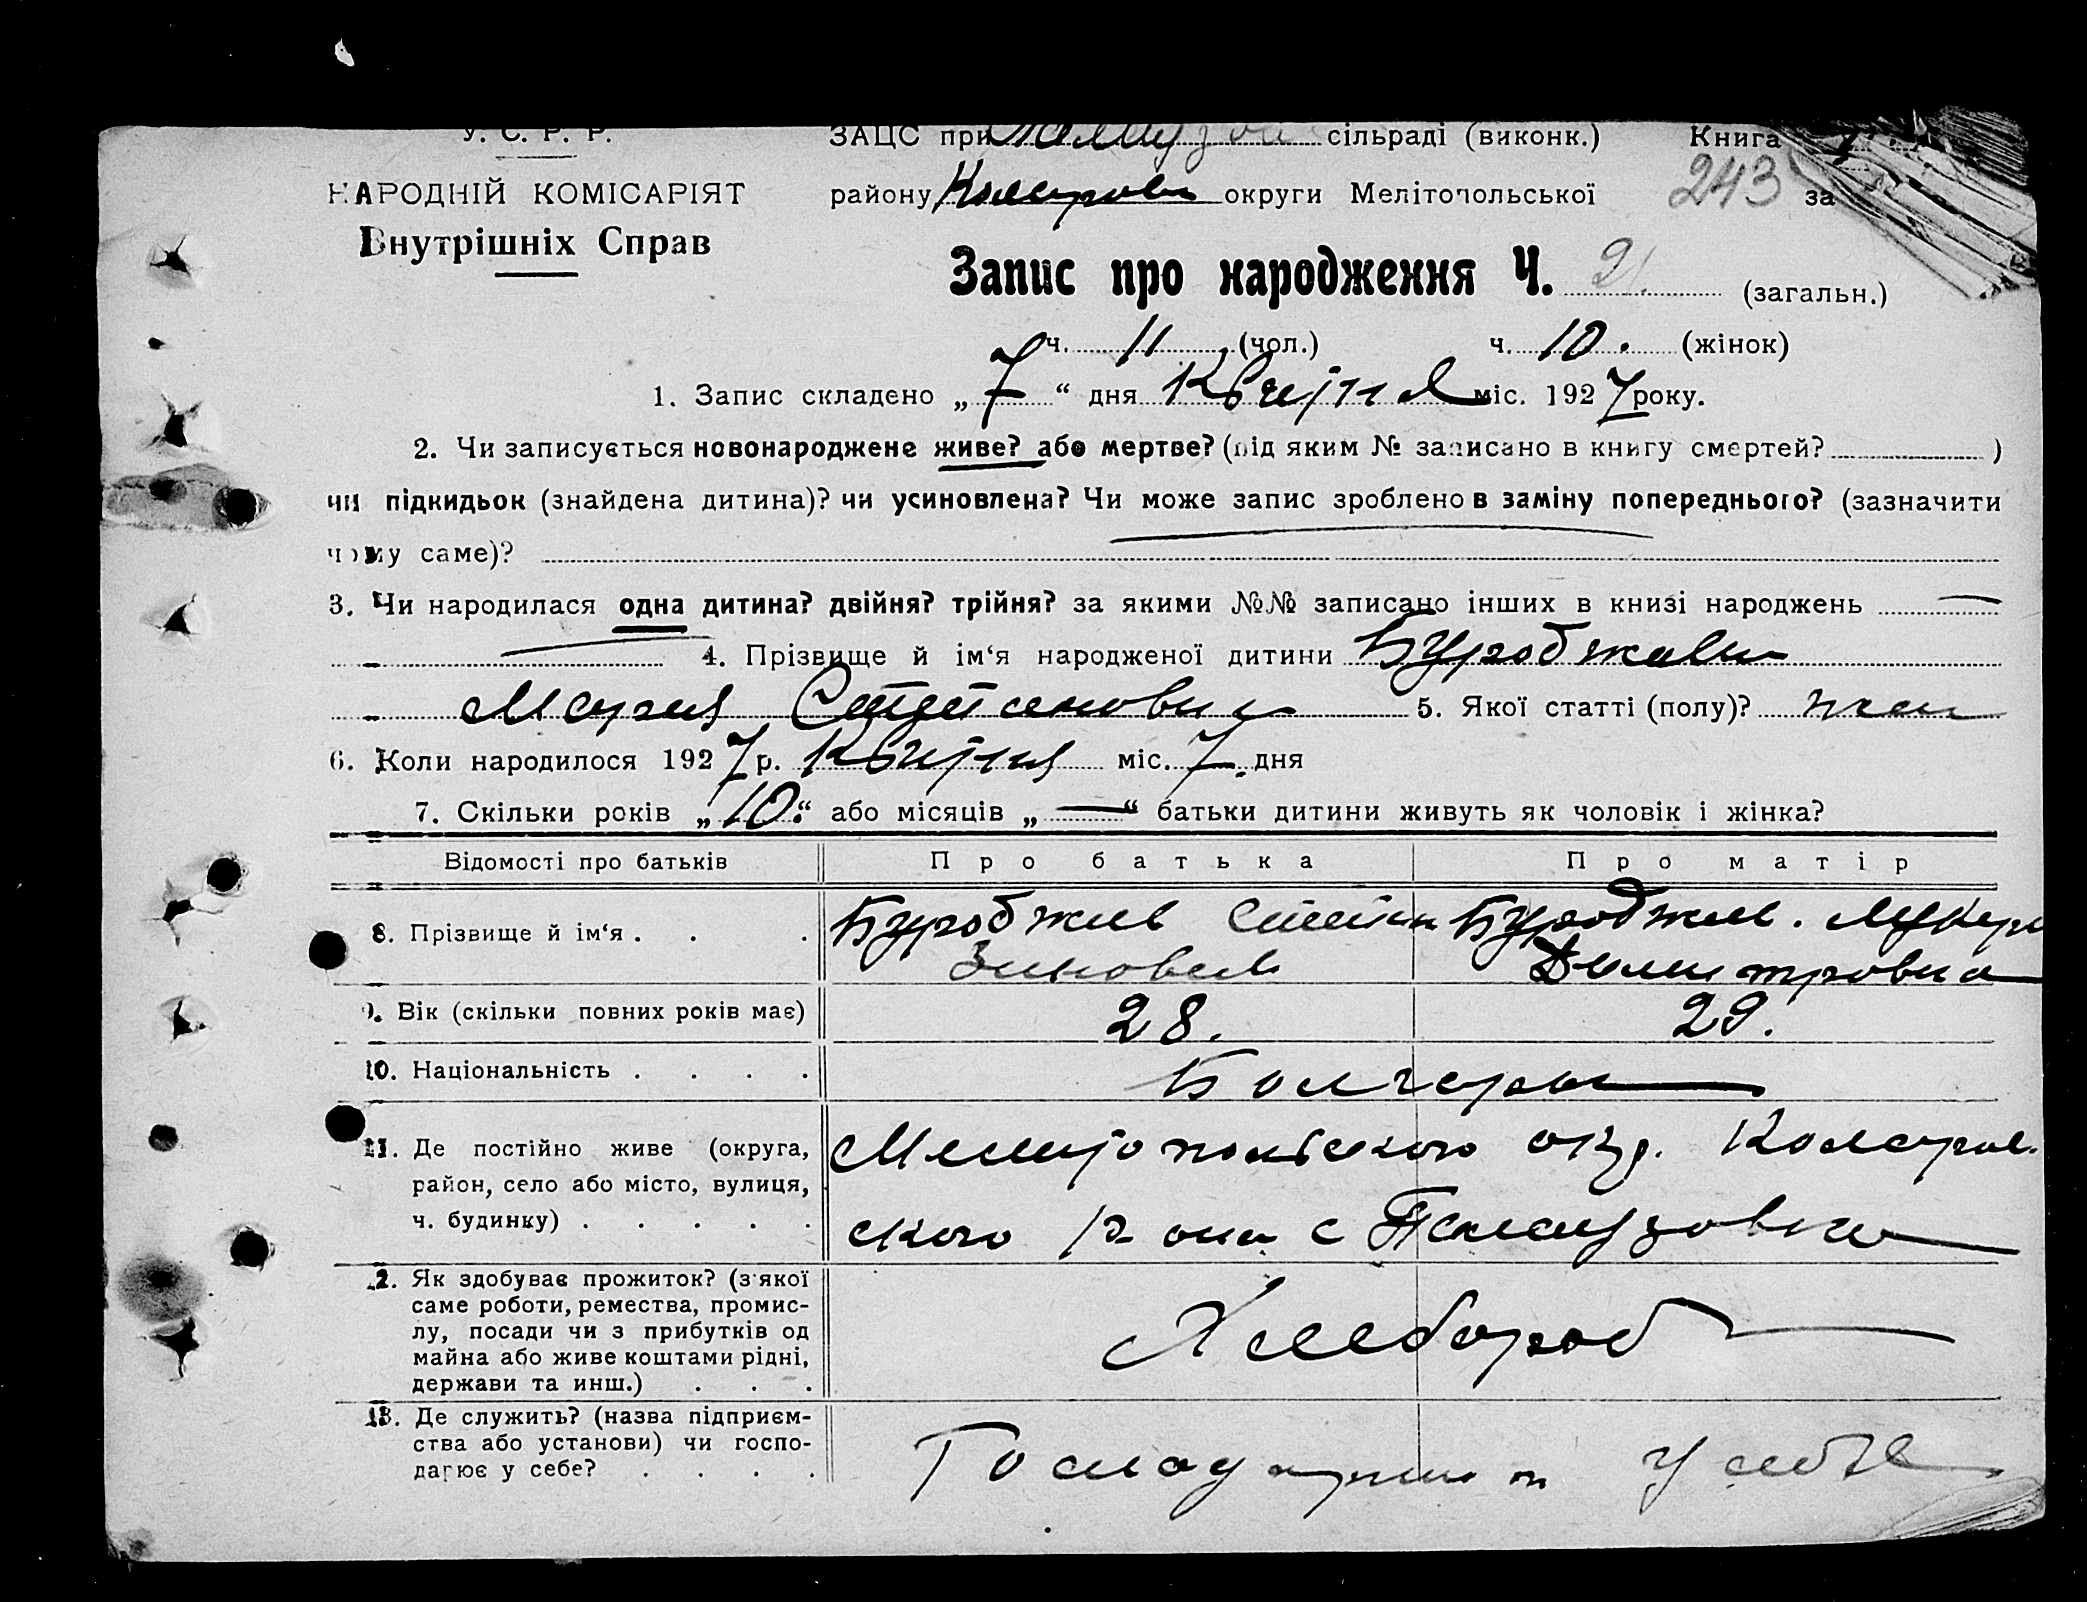 У. С. Р. Р. ЗАЦС при сільраді (виконк.) Книга
НАРОДНІЙ КОМІСАРІЯТ району округи Мелітопольської 243 за
Внутрішніх Справ
Запис про народження Ч. 21 (загальн.)
ч. 11 (чол.) ч. 10. (жінок)
1. Запис складено „7“ дня Квітня міс. 1927 року.
2. Чи записується новонароджене живе? або мертве? (під яким № записано в книгу смертей? )
чи підкидьок (знайдена дитина)? чи усиновлена? Чи може запис зроблено в заміну попереднього? (зазначити
чому саме)?
3. Чи народилася одна дитина? двійня? трійня? за якими №№ записано інших в книзі народжень —
— 4. Прізвище й ім‘я народженої дитини
Мария 5. Якої статті (полу)? жен
6. Коли народилося 1927 р. Квітня міс. 7. дня
7. Скільки років „10.“ або місяців „—“ батьки дитини живуть як чоловік і жінка?
Відомості про батьків Про батька Про матір
8. Прізвище й ім‘я . . . Буроджиев Степан Буроджиев.
Зиновьев Димитровна
9. Вік (скільки повних років має) 28. 29.
10. Національність . . . . Болгары
11. Де постійно живе (округа, Мелітопольского окр.
район, село або місто, вулиця,
ч. будинку) . . . . . ского р-она с
12. Як здобуває прожиток? (з якої
саме роботи, ремества, промис-
лу, посади чи з прибутків од Хлебороб
майна або живе коштами рідні,
держави та инш.) . . .
13. Де служить? (назва підприєм-
ства або установи) чи госпо- у себе
дарює у себе? . . . .